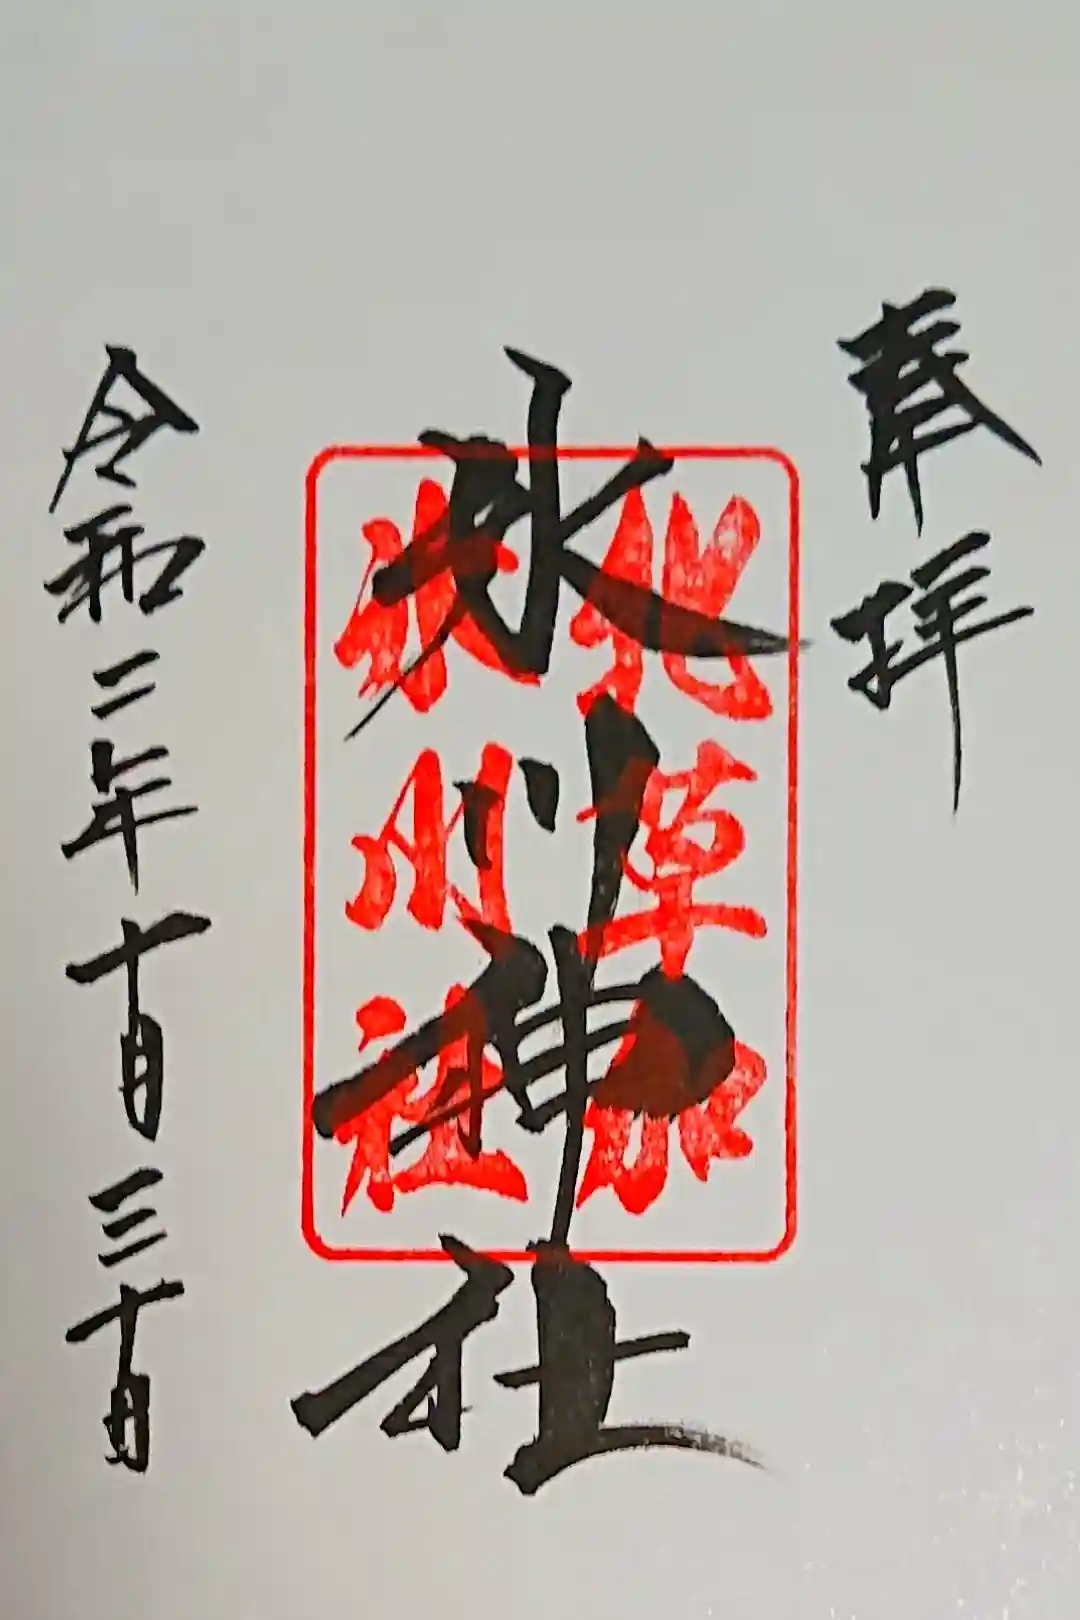 奉拝
北草加
氷川社
氷川神社
令和二年十月三十日